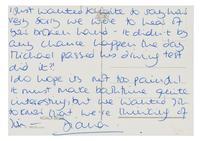 I just wanted to write to say how
very sorry we were to hear of
your broken hand - it didn't by
any chance happen the day
Michael passed his driving test
did it?!
I do hope its not too painful.
It must make bathtime quite
interesting, but we wanted you
to know that we're thinking of
you -